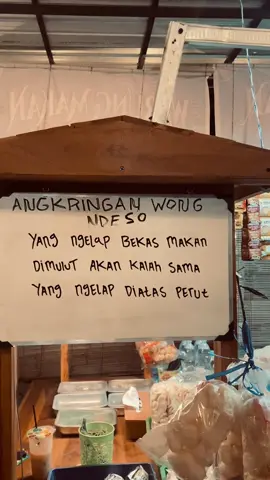 ANGKRINGAN WONG
NDESO
YANG NGELAP BEKAS MAKAN
DIMULUT AKAN KALAH SAMA
YANG NGELAP DIATAS PERUT